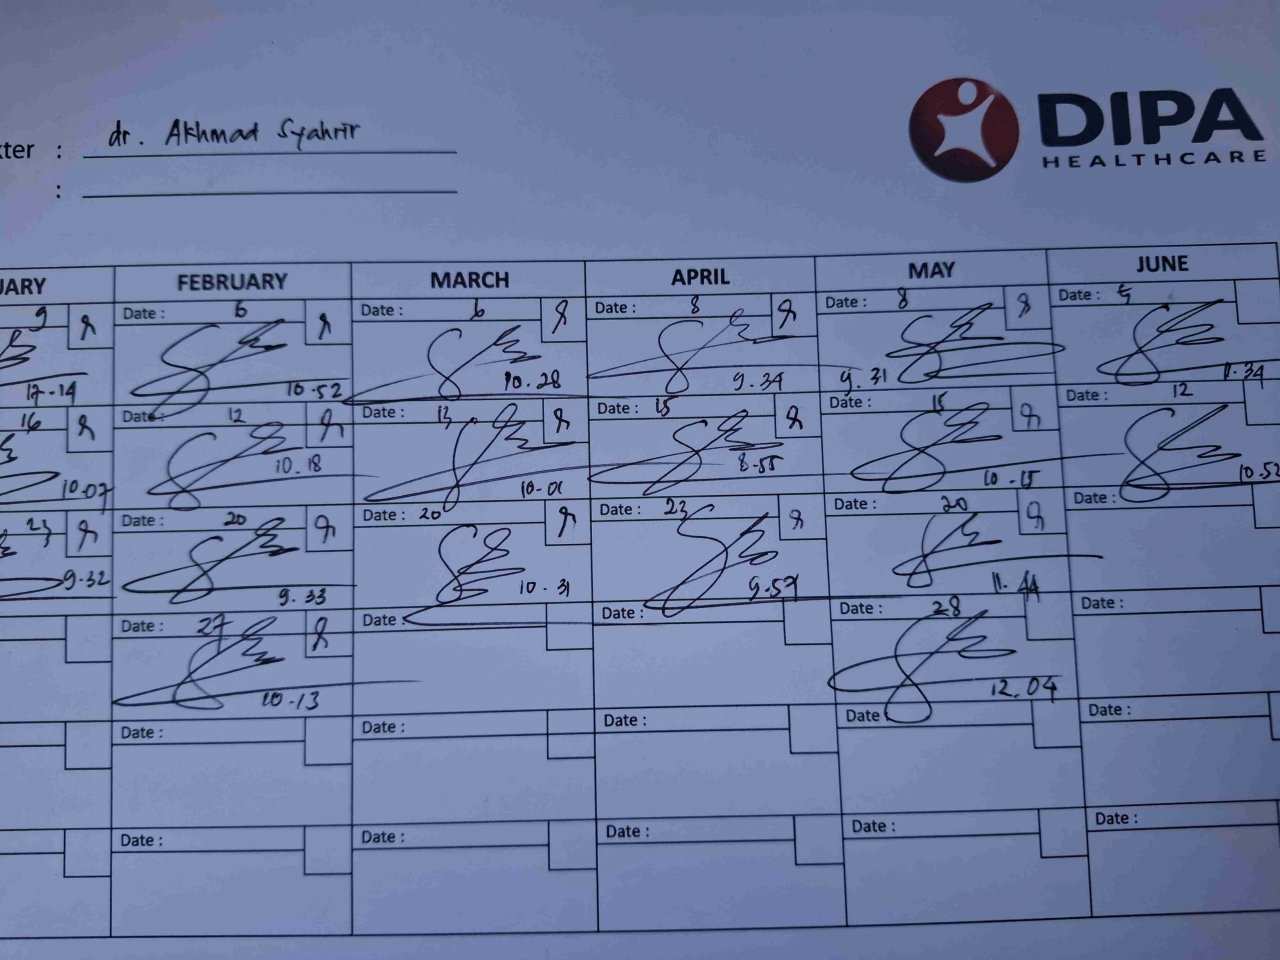 kter : dr. Akhmad Syahrir
:
DIPA
HEALTHCARE
UARY FEBRUARY MARCH APRIL MAY JUNE
9 Date : 6 Date : 6 Date : 8 Date : 8 Date : 5
17-14 10.52 10.28 9.34 9.31 11.34
16 Date : 12 Date : 13 Date : 15 Date : 15 Date : 12
10.07 10.18 10-01 8-55 10-15 10.52
23 Date : 20 Date : 20 Date : 23 Date : 20 Date :
9.32 9.33 10-31 9.57 11.44
Date : 27 Date : Date : Date : 28 Date :
10-13 12.04
Date : Date : Date : Date Date :
Date : Date : Date : Date : Date :